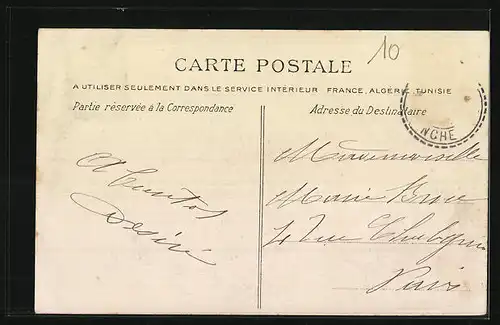 10
CARTE POSTALE
A UTILISER SEULEMENT DANS LE SERVICE INTÉRIEUR FRANCE, ALGÉRIE, TUNISIE
Partie réservée à la Correspondance
Adresse du Destinataire
NCHE
A
Désiré
Mademoiselle
Marie
Rue
Paris